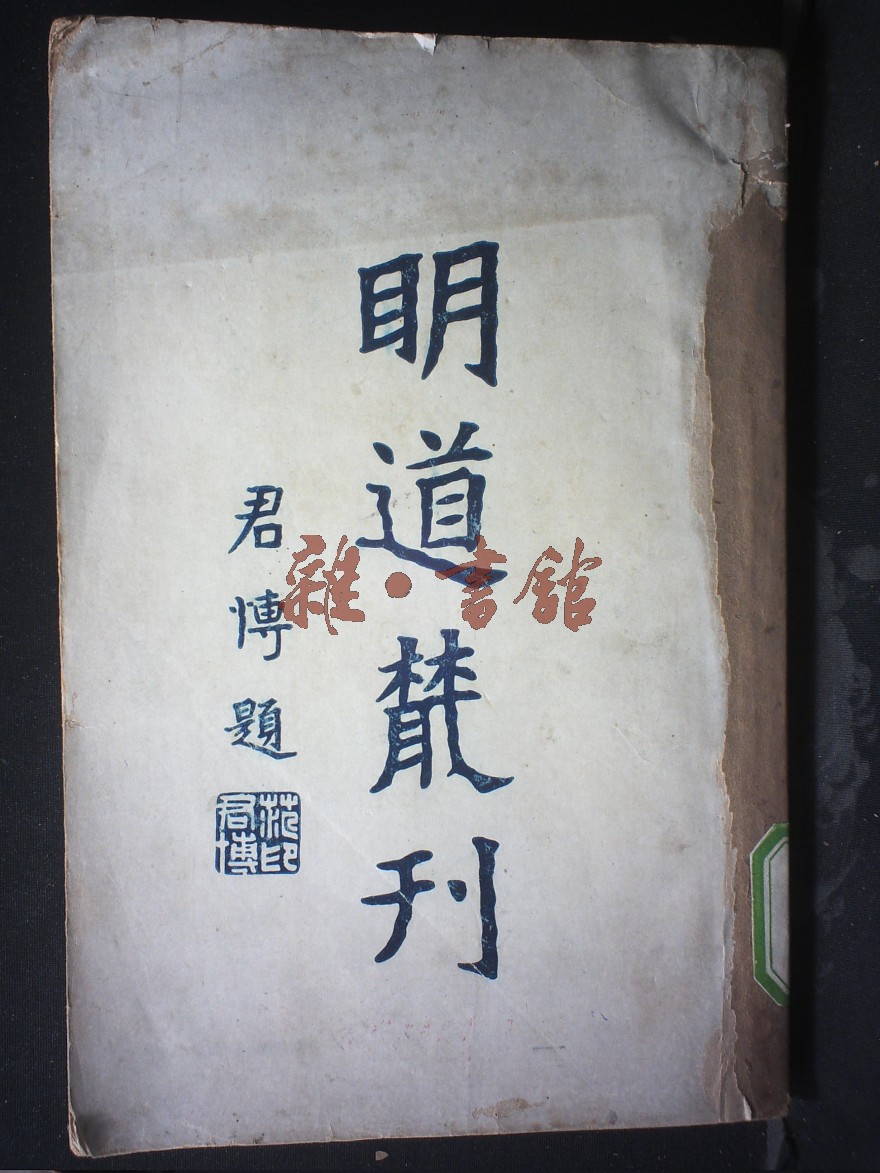 明道叢刊
君博題
范印君博
雜·書館